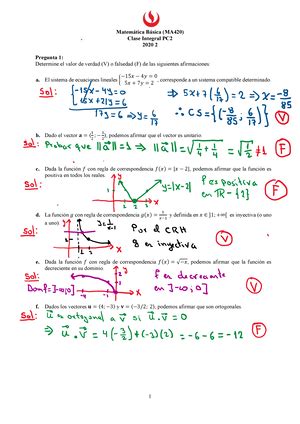 Matemática Básica (MA420)
Clase Integral PC2
2020 2
Pregunta 1:
Determine el valor de verdad (V) o falsedad (F) de las siguientes afirmaciones:
a. El sistema de ecuaciones lineales {−15x − 4y = 0
5x + 7y = 2 corresponde a un sistema compatible determinado
Sol: {-15x-4y=0
15x+21y=6
17y=6 ⇒ y=6/17
⇒ 5x+7(6/17)=2 ⇒ x=-8/85
∴ CS={(-8/85, 6/17)} V
b. Dado el vector a = (1/2; −1/2), podemos afirmar que el vector es unitario
Sol: Probar que ||a||=1 ⇒ ||a||=√(1/4+1/4) = √(1/2) ≠1 F
c. Dada la función f con regla de correspondencia f(x) = |x − 2|, podemos afirmar que la función es
positiva en todos los reales.
Sol:
y=|x-2|
f es positiva
en ℝ-{2}
F
1 2 3
d. La función g con regla de correspondencia g(x) = 1/(x−1) y definida en x ∈ ]1; +∞[ es inyectiva (o uno
a uno)
Sol:
y=1/(x-1)
Por el CRH
g es inyectiva
V
e. Dada la función f con regla de correspondencia f(x) = √−x, podemos afirmar que la función es
decreciente en su dominio.
Sol:
Domf=]-∞;0]
f es decreciente
en ]-∞;0]
V
f. Dados los vectores u = (4; −3) y v = (−3/2; 2), podemos afirmar que son ortogonales
Sol: u es ortogonal a v si u.v = 0
⇒ u.v = 4(-3/2)+(-3)(2) = -6-6 = -12 F
1